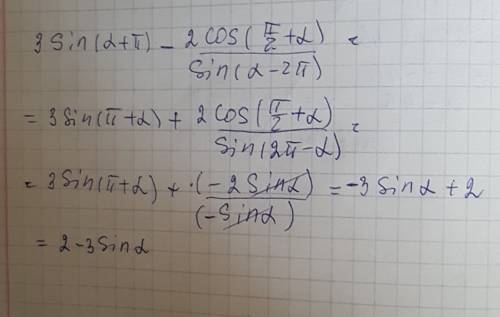 3 Sin(α+π) − 2cos(π/2+α)/Sin(α−2π) =
= 3Sin(π+α) + 2cos(π/2+α)/Sin(2π−α) =
= 3Sin(π+α) + (−2Sinα)/(−Sinα) = −3Sinα + 2
= 2−3Sinα